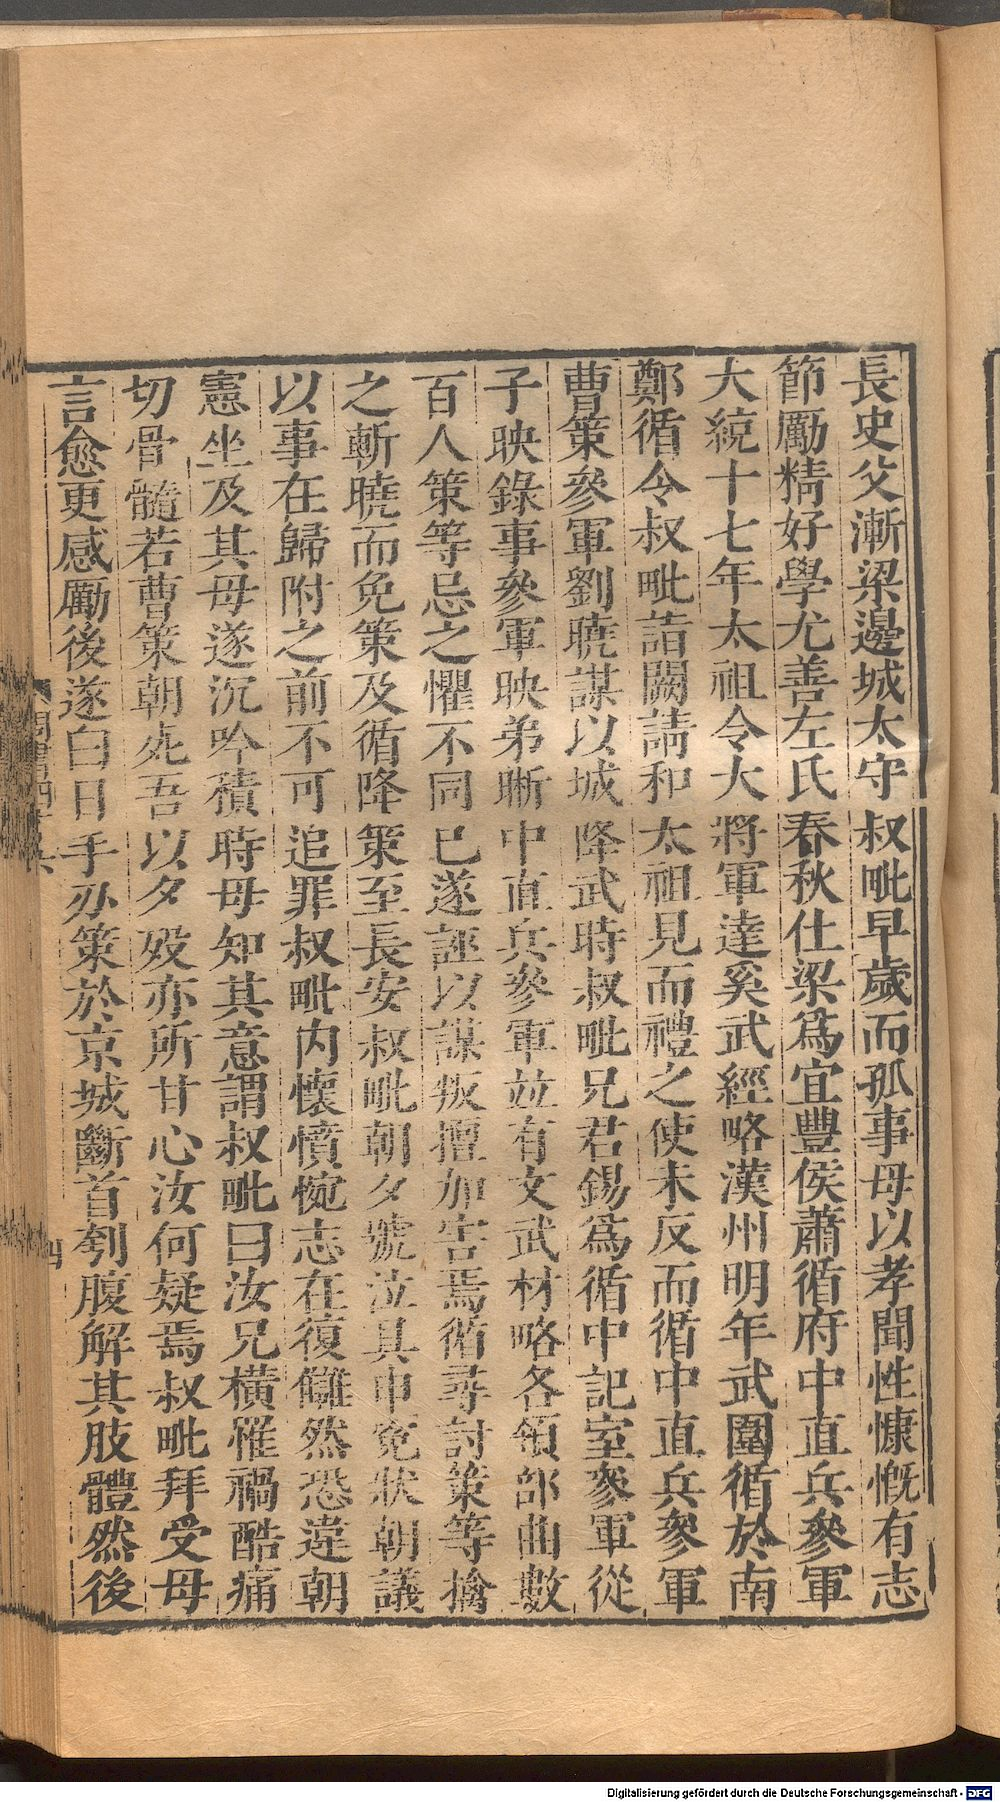 長史父漸梁邊城太守叔毗早歲而孤事母以孝聞性慷慨有志
節勵精好學尤善左氏春秋仕梁爲宜豐侯蕭循府中直兵參軍
大統十七年太祖令大將軍達奚武經略漢州明年武圍循於南
鄭循令叔毗詣闕請和太祖見而禮之使未反而循中直兵參軍
曹策參軍劉曉謀以城降武時叔毗兄君錫爲循中記室參軍從
子映錄事參軍映弟晰中直兵參軍竝有文武材略各領部曲數
百人策等忌之懼不同已遂誣以謀叛擅加害焉循尋討策等擒
之斬曉而免策及循降策至長安叔毗朝夕號泣具申寃狀朝議
以事在歸附之前不可追罪叔毗內懷憤惋志在復讎然恐違朝
憲坐及其母遂沉吟積時母知其意謂叔毗曰汝兄橫罹禍酷痛
切骨髓若曹策朝死吾以夕歿亦所甘心汝何疑焉叔毗拜受母
言愈更感勵後遂白日手刃策於京城斷首刳腹解其肢體然後
周書四十六
四
Digitalisierung gefördert durch die Deutsche Forschungsgemeinschaft - DFG